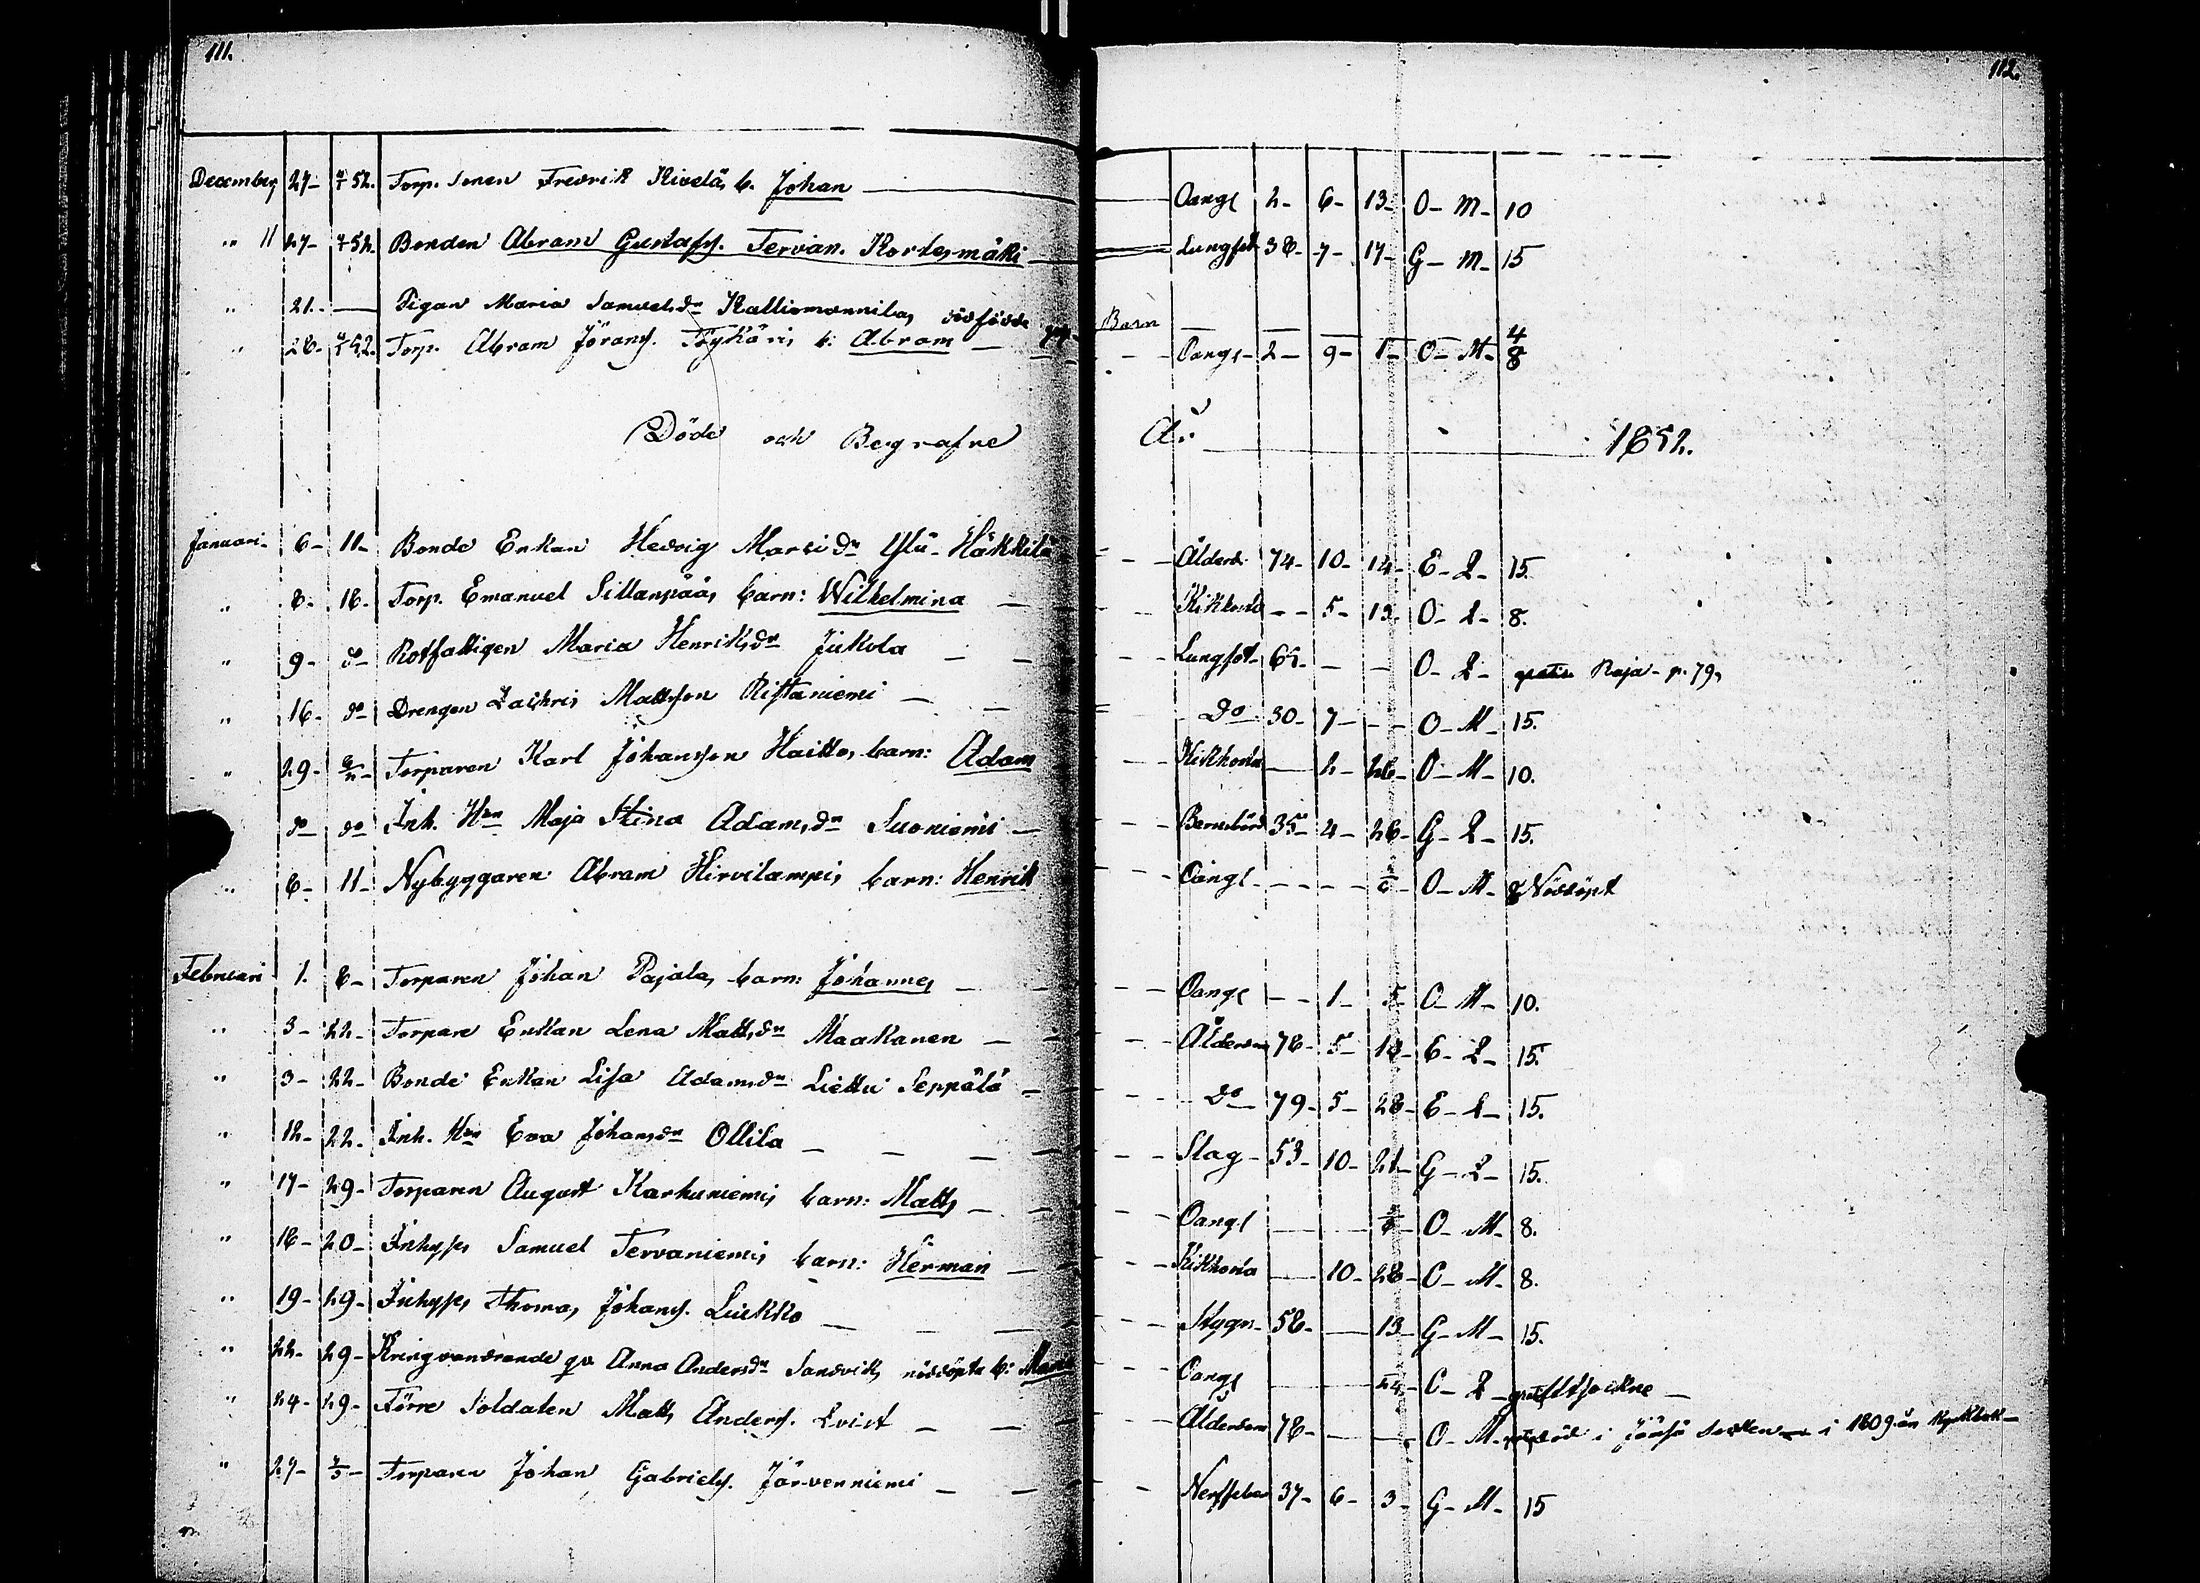 111. 112.
December 27- 4/1 52. Torp. Sonen Fredrik Kivelä, b. Johan — Oangl 2- 6- 13- O- M- 10
" 11 27- 4/1 52. Bonden Abram Gustafss. Tervan. Kortesmäki — Lungsot 38- 7- 17- G- M- 15
" 21. — Pigan Maria Samuelsdr Kalliomannila, dödfödde Barn — — — — 4
" 28- 4/1 52. Torp. Abram Jöranss. Töykäri, b: Abram — Oangl- 2- 9- 1- O- M- 8
Döde och Begrafne År 1852.
Januari- 6- 11- Bonde Enkan Hedvig Mariдdr Yli-Häkkilä - - Ålderd. 74- 10- 14- E- Q- 15.
" 8- 18- Torp. Emanuel Sillanpää, barn: Wilhelmina — Kikhosta - - 5- 13. O- Q- 8.
" 9- do- Rotfattigen Maria Henriksdr Jukola — Lungsot- 65- - - O- Q- gratis Raja- p. 79,
" 16- do- Drengen Zachris Mattsson Ristaniemi — do- 30- 7- - - O- M- 15.
" 29- 8/2- Torparen Karl Johansson Haitto, barn: Adam — Kikhosta — 2- 26- O- M- 10.
do do Inh. Hun Maja Stina Adamsdr Suoniemi — Barnsbörd 35- 4- 26- G- Q- 15.
" 6- 11- Nybyggaren Abram Hirvilampi, barn: Henrik - - Oangl - - - - O- M- 8 Nöddöpt
Februari 1. 8- Torparen Johan Pajala, barn: Johannes — Oangl - - 1- 5 O- M- 10.
" 3- 22- Torpare Enkan Lena Mattsdr Maakanen — Ålderdom 78- 5- 18- E- Q- 15.
" 3- 22- Bonde Enkan Lisa Adamsdr Liettu Seppälä — do- 79- 5- 28- E- Q- 15.
" 12- 22- Inh. Hun Eva Johansdr Ollila — Slag- 53- 10- 21- G- Q- 15.
" 17- 29- Torparen August Karhuniemi, barn: Matts — Oangl — — O- M- 8.
" 18- 20- Inhyses Samuel Tervaniemi, barn: Herman — Kikhosta — 10- 28- O- M- 8.
" 19- 29- Inhyses Thomas Johanss. Luukko — Stygn- 58- — 13- G- M- 15.
" 22- 29- Kringvandrande qv. Anna Andersdr Sandvik, nöddöpta b: — Oangl — — O- Q-
" 24- 29- Förre Soldaten Matts Anderss. Qvist — Ålderdom 78- — — O- M- i socken i 1809 års Kyrkbok-
" 27- 7/3- Torparen Johan Gabrielss. Järvenniemi — Nerffeber 37- 6- 3- G- M- 15